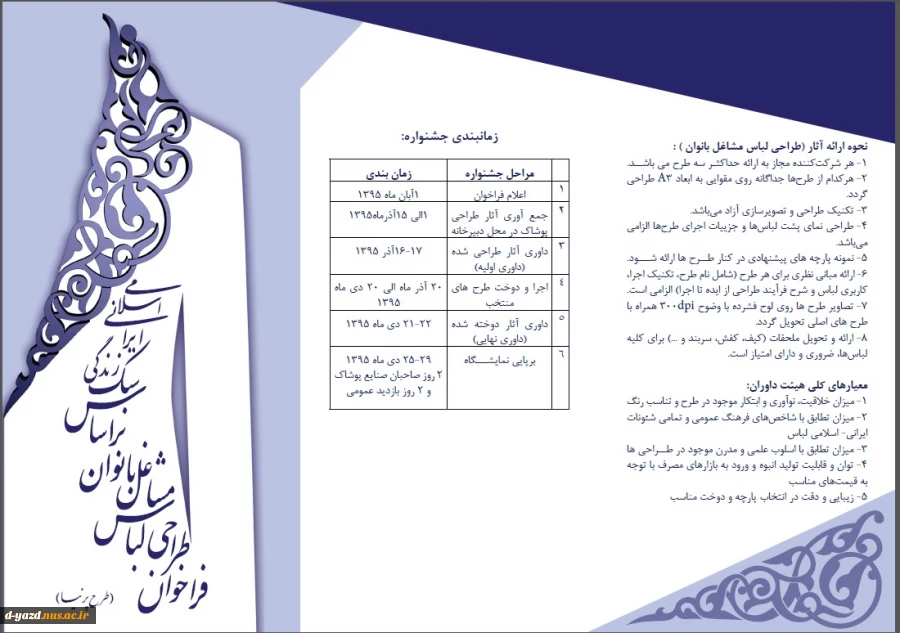 نحوه ارائه آثار (طراحی لباس مشاغل بانوان ) :
۱- هر شرکت‌کننده مجاز به ارائه حداکثر سه طرح می باشد.
۲- هرکدام از طرح‌ها جداگانه روی مقوایی به ابعاد A۳ طراحی
گردد.
۳- تکنیک طراحی و تصویرسازی آزاد می‌باشد.
۴- طراحی نمای پشت لباس‌ها و جزییات اجرای طرح‌ها الزامی
می‌باشد.
۵- نمونه پارچه های پیشنهادی در کنار طرح ها ارائه شود.
۶- ارائه مبانی نظری برای هر طرح (شامل نام طرح، تکنیک اجرا،
کاربری لباس و شرح فرآیند طراحی از ایده تا اجرا) الزامی است.
۷- تصاویر طرح ها روی لوح فشرده با وضوح ۳۰۰dpi همراه با
طرح های اصلی تحویل گردد.
۸- ارائه و تحویل ملحقات (کیف، کفش، سربند و ...) برای کلیه
لباس‌ها، ضروری و دارای امتیاز است.
معیارهای کلی هیئت داوران:
۱- میزان خلاقیت، نوآوری و ابتکار موجود در طرح و تناسب رنگ
۲- میزان تطابق با شاخص‌های فرهنگ عمومی و تمامی شئونات
ایرانی- اسلامی لباس
۳- میزان تطابق با اسلوب علمی و مدرن موجود در طراحی ها
۴- توان و قابلیت تولید انبوه و ورود به بازارهای مصرف با توجه
به قیمت‌های مناسب
۵- زیبایی و دقت در انتخاب پارچه و دوخت مناسب
زمانبندی جشنواره:
مراحل جشنواره زمان بندی
۱ اعلام فراخوان ۱آبان ماه ۱۳۹۵
۲ جمع آوری آثار طراحی ۱الی ۱۵آذرماه۱۳۹۵
پوشاک در محل دبیرخانه
۳ داوری آثار طراحی شده ۱۷-۱۶آذر ۱۳۹۵
(داوری اولیه)
۴ اجرا و دوخت طرح های ۲۰ آذر ماه الی ۲۰ دی ماه
منتخب ۱۳۹۵
۵ داوری آثار دوخته شده ۲۲-۲۱ دی ماه ۱۳۹۵
(داوری نهایی)
۶ برپایی نمایشگاه ۲۹-۲۵ دی ماه ۱۳۹۵
۲ روز صاحبان صنایع پوشاک
و ۲ روز بازدید عمومی
فراخوان
طراحی لباس
مشاغل بانوان
براساس
سبک زندگی
ایرانی
اسلامی
(طرح پرنیا)
d-yazd.nus.ac.ir